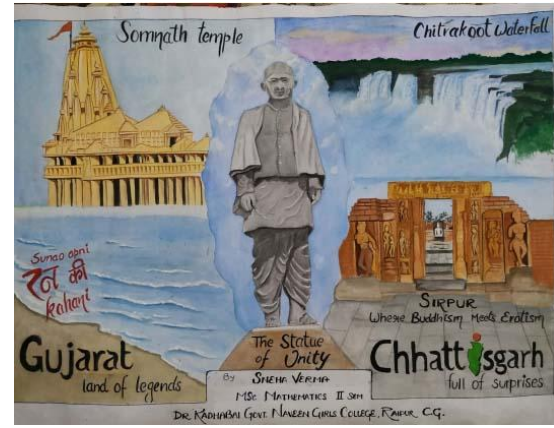 Somnath temple
Chitrakoot Waterfall
Sunao apni
रन की
kahani
Gujarat
land of legends
The Statue
of Unity
SIRPUR
Where Buddhism Meets Erotism
Chhattisgarh
full of surprises
By SNEHA VERMA
MSC MATHEMATICS II SEM
DR. RADHABAI GOVT. NAVEEN GIRLS COLLEGE, RAIPUR C.G.